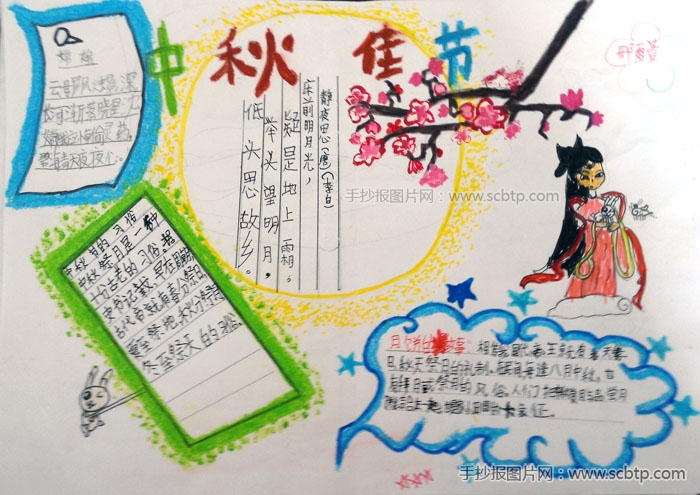 中秋佳节
嫦娥
云母屏风烛影深
长河渐落晓星
碧海青天夜夜心。
静夜思(唐)(李白)
床前明月光，
疑是地上霜。
举头望明月，
低头思故乡。
中秋节的习俗
中秋祭月是一种
十分古老的习俗。据
史书记载，早在周朝
古代就有春分祭日
夏至祭地，秋分祭月
冬至祭天的习俗
故事 相传古代帝王就有春天祭
日，秋天祭月的礼制。民间每逢八月中秋，也
月或祭月的风俗。人们
手抄报图片网：www.scbtp.com
手抄报图片网：www.scbtp.com